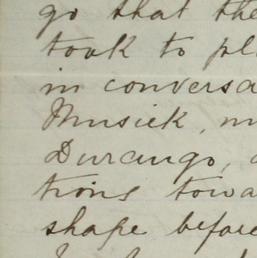 go that the
took to pl
in conversa
Musick, m
Durango,
tions towa
shape before